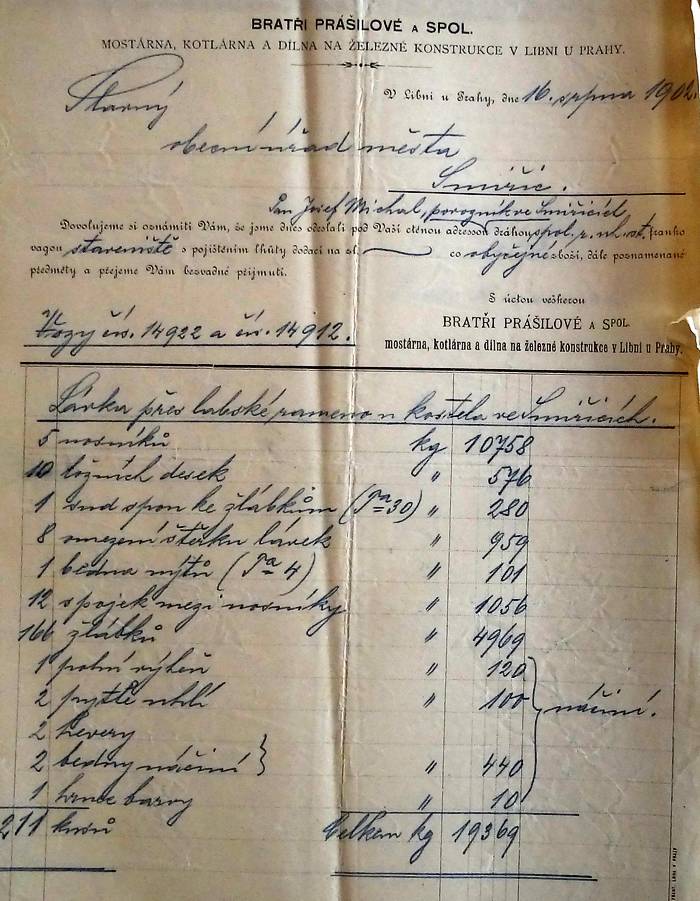 BRATŘI PRÁŠILOVÉ A SPOL.
MOSTÁRNA, KOTLÁRNA A DÍLNA NA ŽELEZNÉ KONSTRUKCE V LIBNI U PRAHY.
V Libni u Prahy, dne 16. srpna 1902.
Slavný
obecní úřad města
Smiřic.
Pan Josef Michal, povozník ve Smiřicích,
Dovolujeme si oznámiti Vám, že jsme dnes odeslali pod Vaší ctěnou adressou dráhou spol. r. uh. st. franko
vagon staveniště s pojištěním lhůty dodací na zl. co obyčejné zboží, dále poznamenané
předměty a přejeme Vám bezvadné přijmutí.
S úctou veškerou
BRATŘI PRÁŠILOVÉ A SPOL.
mostárna, kotlárna a dílna na železné konstrukce v Libni u Prahy.
Vozy čís. 14922 a čís. 14912.
Lávka přes labské rameno u kostela ve Smiřicích.
5 nosníků kg 10758
10 ložních desek " 576
1 sud spon ke žlábkům (Pa = 30) " 280
8 omezení štěrku lávek " 959
1 bedna nýtů (Pa = 4) " 101
12 spojek mezi nosníky " 1056
166 žlábků " 4969
1 polní výheň " 120
2 pytle uhlí " 100 náčiní.
2 hevery
2 bedny náčiní " 440
1 hrnec barvy " 10
211 kusů Celkem kg 19369